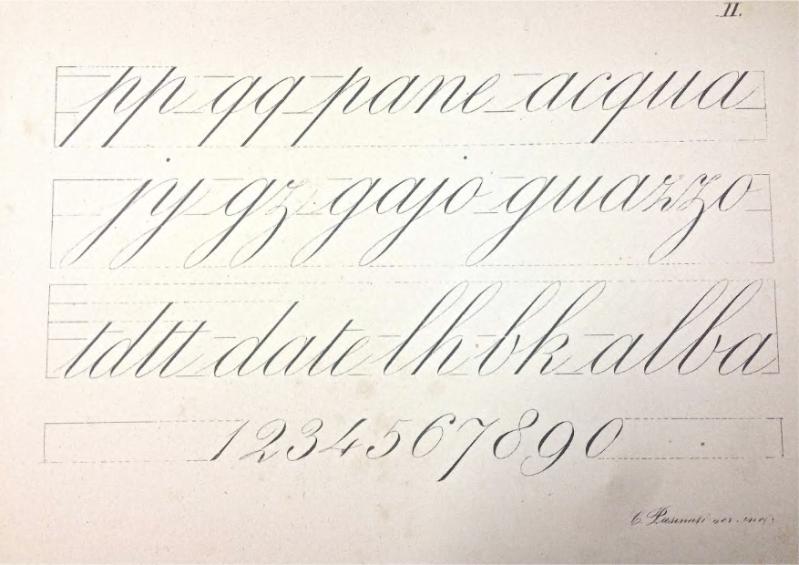 II.
pp qq pane acqua
jy gz gajo guazzo
tdtt date lh bk alba
1234567890